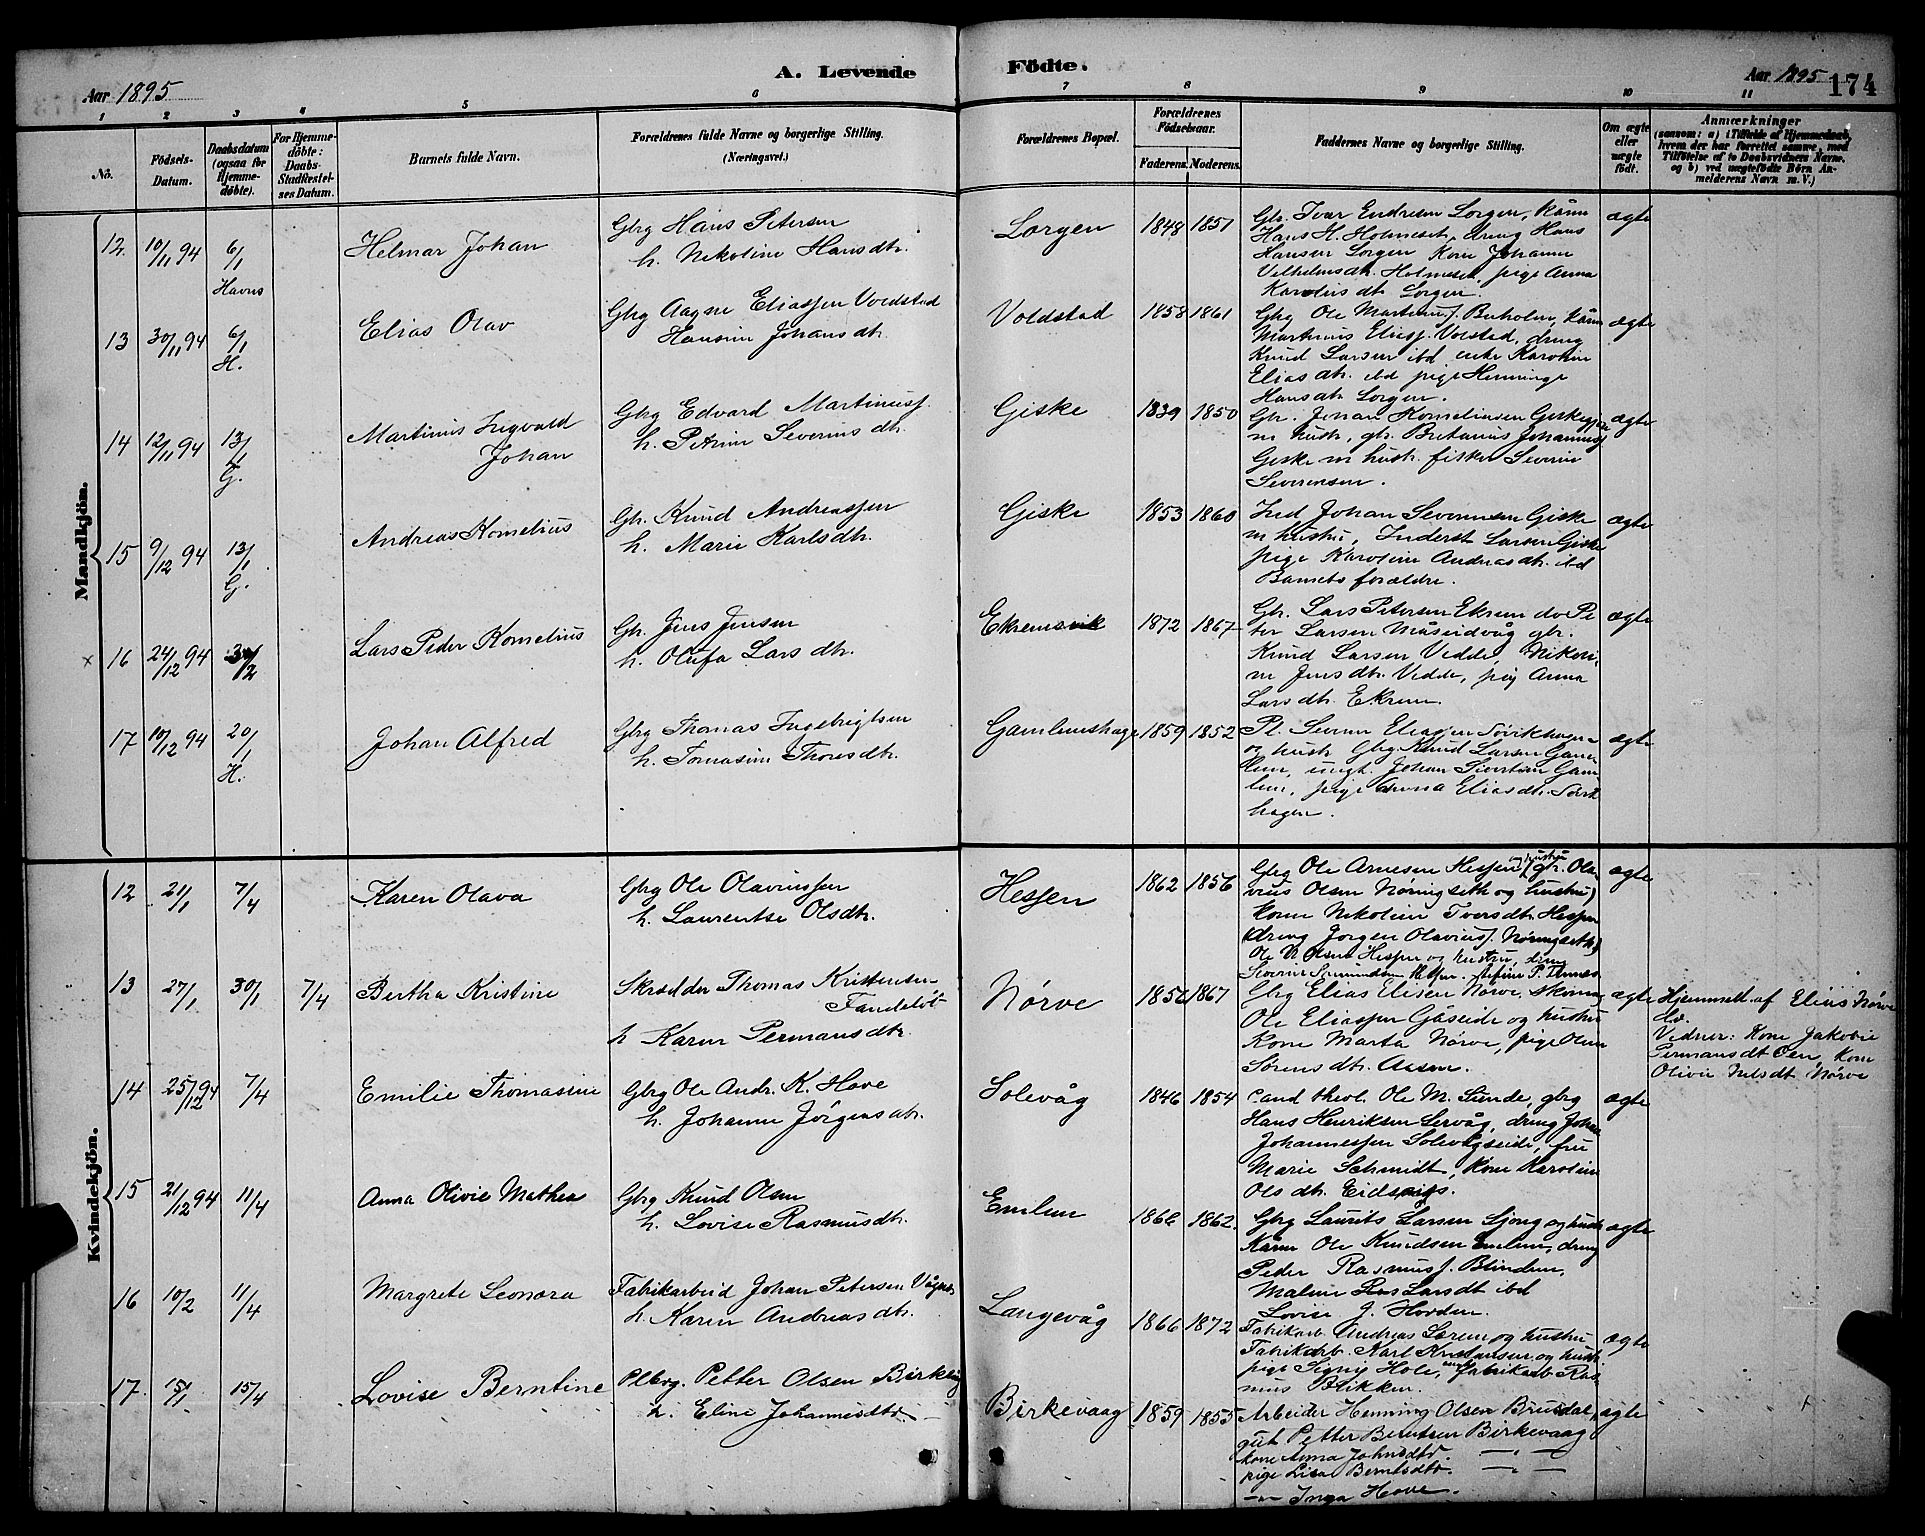 A. Levende Födte.
Aar 1895
Aar 1895
174
1 2 3 4 5 6 7 8 9 10 11
No.
Födsels-Datum.
Daabsdatum (ogsaa for Hjemmedöbte).
For Hjemmedöbte: Daabs-Stadfæstelses Datum.
Barnets fulde Navn.
Forældrenes fulde Navne og borgerlige Stilling. (Næringsvei.)
Forældrenes Bopæl.
Forældrenes Födselsaar.
Faderens. Moderens.
Faddernes Navne og borgerlige Stilling.
Om ægte eller uægte födt.
Anmærkninger
(saasom: a) i Tilfælde af Hjemmedaab, hvem der har forrettet samme, med Tilföielse af to Daabsvidners Navne, og b) ved uægtefödte Börn Anmelderens Navn m. V.)
Mandkjön.
12 10/11 94 6/1 Havns
Helmar Johan
Gbrg Hans Petersen
h. Nikoline Hansdtr.
Sorgen 1848 1851
Gbr. Ivar Endresen Sorgen, Kårm
Hans H. Holmeset, dreng Hans
Hansen Sorgen Kone Johanne
Vilhelmsdtr. Holmeset, pige Anna
Karolusdt Sorgen.
ægte
13 30/11 94 6/1 H.
Elias Olav
Gbrg Aagne Eliassen Voldstad
Hansine Johansdtr.
Voldstad 1858 1861
Gbrg Ole Martinusf. Buholm, Kårm
Martinus Eliasf. Volstad, dreng
Knud Larsen ibd enke Karoline
Eliasdtr. ibd pige Henninge
Hansdtr Sorgen.
ægte
14 12/11 94 13/1 G.
Martinus Ingvald
Johan
Gbrg Edvard Martinusf.
h. Petrine Severinsdtr.
Giske 1839 1850
Gbr. Johan Kornelinsen Giskegjer
m hustr, gbr. Bretanius Johannesf
Giske m hustr. fisker Severin
Severensen.
ægte
15 9/12 94 13/1 G.
Andreas Kornelius
Gbr. Knud Andreassen
h. Marie Karlsdtr.
Giske 1853 1860
Ind Johan Severinsen Giske
m hustru, Inderst Larsen Giske
pige Karoline Andreasdtr. ibd
Barnets forældre.
ægte
x 16 24/12 94 /2
Lars Peder Kornelius
Gbr. Jens Jensen
h. Olufa Larsdtr.
Ekremsvik 1872 1867
Gbr. Lars Petersen Ekrem do Pe
ter Larsen Måseidvåg gbr.
Knud Larsen Vedde, Nikoli-
ne Jensdtr. Vedde, pig Anna
Larsdtr. Ekrem.
ægte
17 10/12 94 20/1 H.
Johan Alfred
Gbrg Thomas Ingebrigtsen
h. Tomasine Thoresdtr.
Gamlemshage 1859 1852
Pl. Severin Eliassen Sövikhagen
og hustr Gbrg. Knud Larsen Gam-
lem, ungk. Johan Sivertsen Gam-
lem, pige Anna Eliasdtr. Sövik
hagen.
ægte
Kvindekjön.
12 21/1 7/4
Karen Olava
Gbrg Ole Olavinssen
h. Laurentse Olsdtr.
Hessen 1862 1856
Gbrg Ole Arnesen Hessen og hustru (gbr. Ola-
vius Olsen Nöringseth og hustru)
kone Nikoline Iversdtr. Hessen
(dreng Jörgen Olaviusf. Nöringseth)
Ole N Olsen Hessen og hustru, dreng
ægte
13 27/1 30/1 7/4
Bertha Kristine
Skrædder Thomas Kristensen
h Karen Permansdtr
Nörve 1867
Gbrg Elias Elisen Nörve, skomag
Ole Eliassen Gåseide og hustru
Kone Marta Nörve, pige Olava
Sörensdtr. Aasen.
ægte
Hjemmedt. af Elius Nörve
Vidner: Kone Jakobie
Permansdt Oen, kone
Olivie Nilsdt Nörve
14 25/12 94 7/4
Emilie Thomasine
Gbrg Ole Andr. K. Hove
h. Johanne Jörgensdtr.
Solevåg 1846 1854
Cand theol. Ole M. Sunde, gbrg
Hans Henriksen Servåg, dreng Johan
Johannessen Solevågseide, fru
Marie Schmidt, Kone Karoline
Olsdtr. Eidsvigs.
ægte
15 21/12 94 11/4
Anna Olivie Mathea
Gbrg Knud Olsen
h. Lovise Rasmusdtr.
Emlem 1866 1862.
Gbrg Laurits Larsen Ljong og hustr
Kårm Ole Knudsen Emlem, dreng
Peder Rasmusf. Blindem,
Maline Larsdt ibd
Lovise J. Hovden.
ægte
16 10/2 11/4
Margrete Leonora
Fabrikarbeid Johan Petersen Vågnes
h. Karen Andreasdtr.
Langevåg 1866 1872
Fabrikarb. Andreas Sörem og hustru
Fabrikarb Karl Kristiansen og hustr
pige Signy Hole, ungk fabrikarb Ras
mus Blikken.
ægte
17. 15/1 15/4
Lovise Berntine
Plbrg. Petter Olsen Birkevåg
h. Eline Johannesdtr
Birkevaag 1859 1855
Arbeider Henning Olsen Brusdal,
gut Petter Berntsen Birkevaag
kone Anna Johnsdtr. — " —
pige Lisa Berntsdtr. — " —
— " — Inga Hove.
ægte